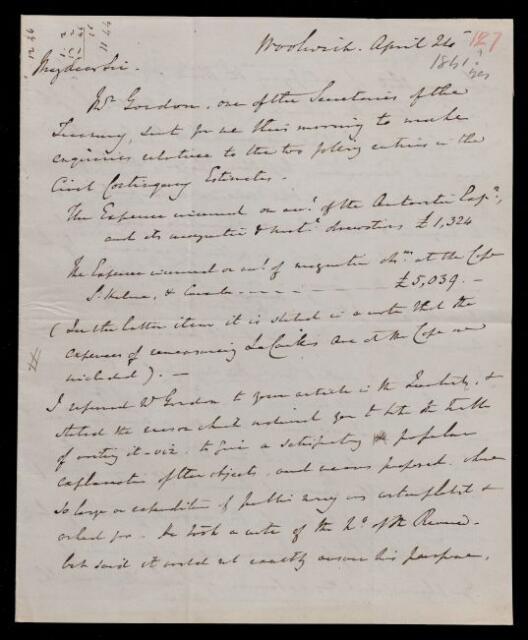 Woolwich. April 24th 127
1841? yes
My dear Sir.
Mr Gordon, one of the Secretaries of the
Treasury, sent for me this morning to make
enquiries relative to the two following entries in the
Civil Contingency Estimates.
The Expense incurred on acct. of the Antarctic Expn,
and its magnetic & observations £1,324
The Expense incurred on acct. of magnetic obsns at the Cape
St. Helena, & Canada £5,039. —
(In the latter item it is stated in a note that the
expenses of remeasuring La Caille's Arc at the Cape are
included). —
I referred Mr Gordon to your article in the Quarterly, &
stated the reason which induced you to take the trouble
of writing it - viz. to give a satisfactory & popular
explanation of the objects, and means proposed, when
so large an expenditure of public money was contemplated &
asked for. He took a note of the No. of the Review.
but said it would not exactly answer his purpose,